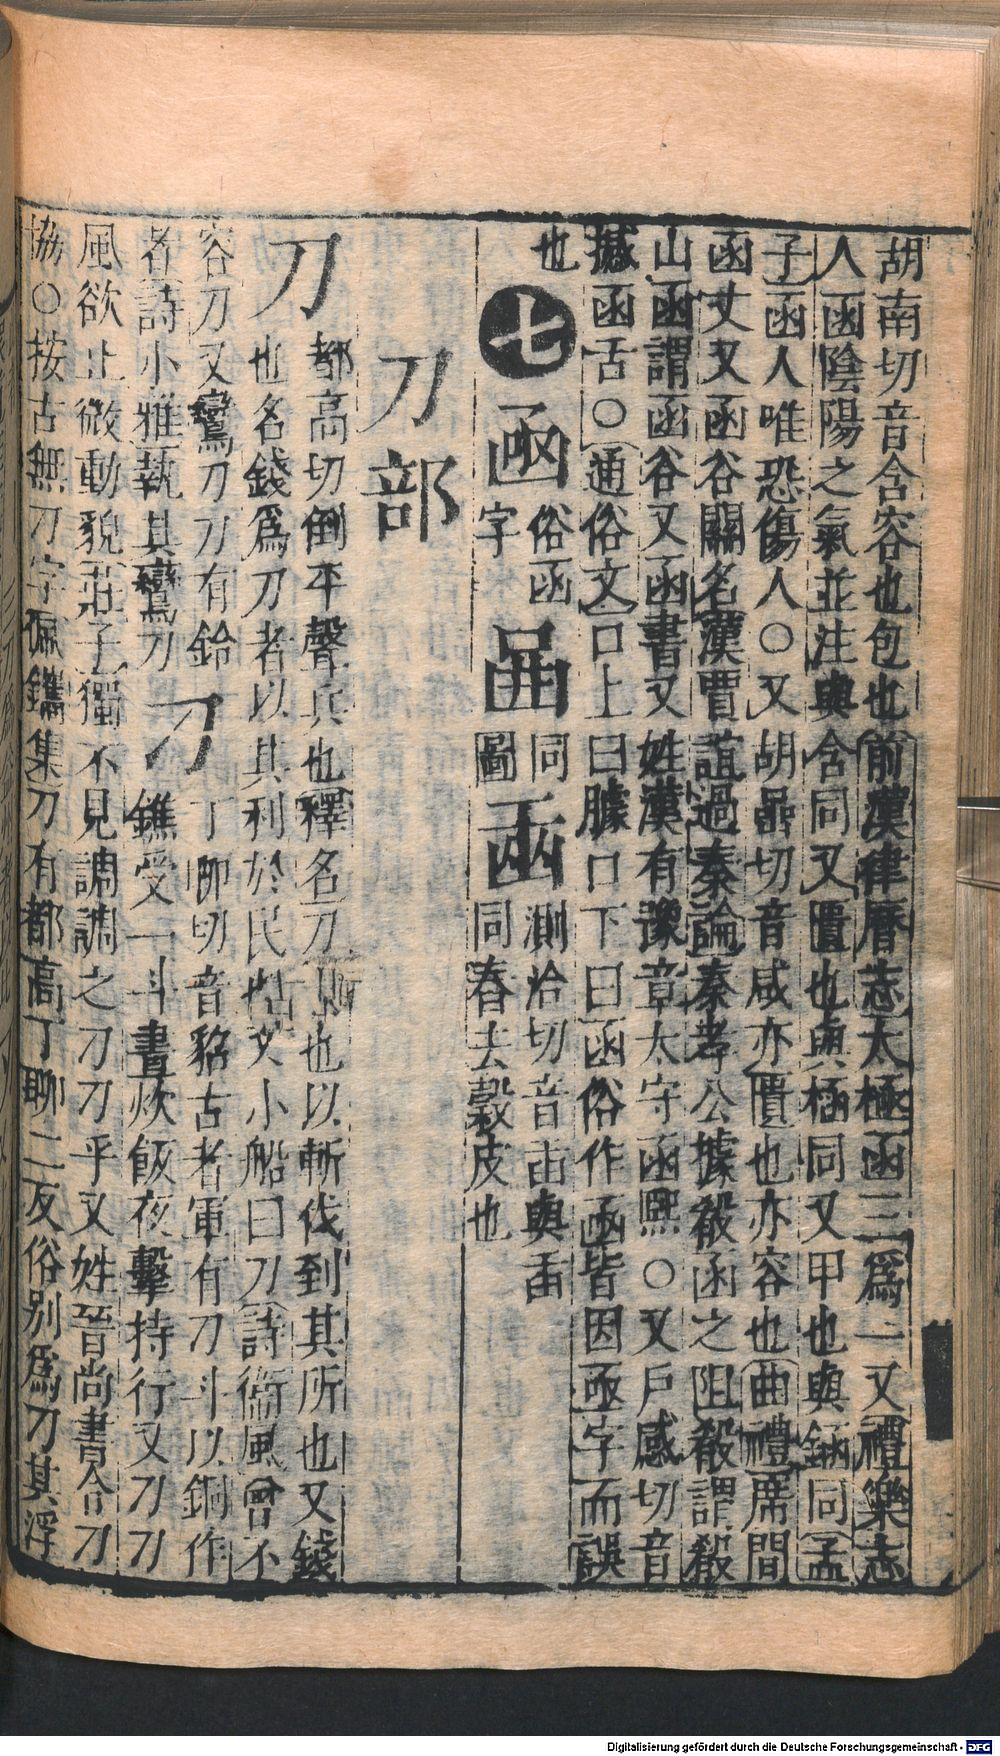 胡南切音含容也包也前漢律曆志太極函三爲一又禮樂志
人函陰陽之氣並注與含同又匱也與極同又甲也與鋂同孟
子函人唯恐傷人○又胡喦切音咸亦匱也亦容也曲禮席間
函丈又函谷關名漢賈誼過秦論秦孝公據殽函之阻殽謂殽
山函謂函谷又函書又姓漢有豫章太守函熙○又戶感切音
撼函舌○通俗文口上曰臄口下曰函俗作凾皆因亟字而誤
也
七 凾俗函字 𠚍同圖 臿同 測洽切音臿與臿同舂去穀皮也
刀部
刀都高切倒平聲兵也釋名刀到也以斬伐到其所也又錢
也名錢爲刀者以其利於民也又小船曰刀詩衞風曾不
容刀又鸞刀刀有鈴 刁丁聊切音貂古者軍有刁斗以銅作
者詩小雅執其鸞刀 鐎受一斗晝炊飯夜擊持行又刀刀
風欲止微動貌莊子獨不見調調之刀刀乎又姓晉尚書令刀
協○按古無刁字偏鑴集刀有都高丁聊二反俗別爲刁甚浮
Digitalisierung gefördert durch die Deutsche Forschungsgemeinschaft - DFG